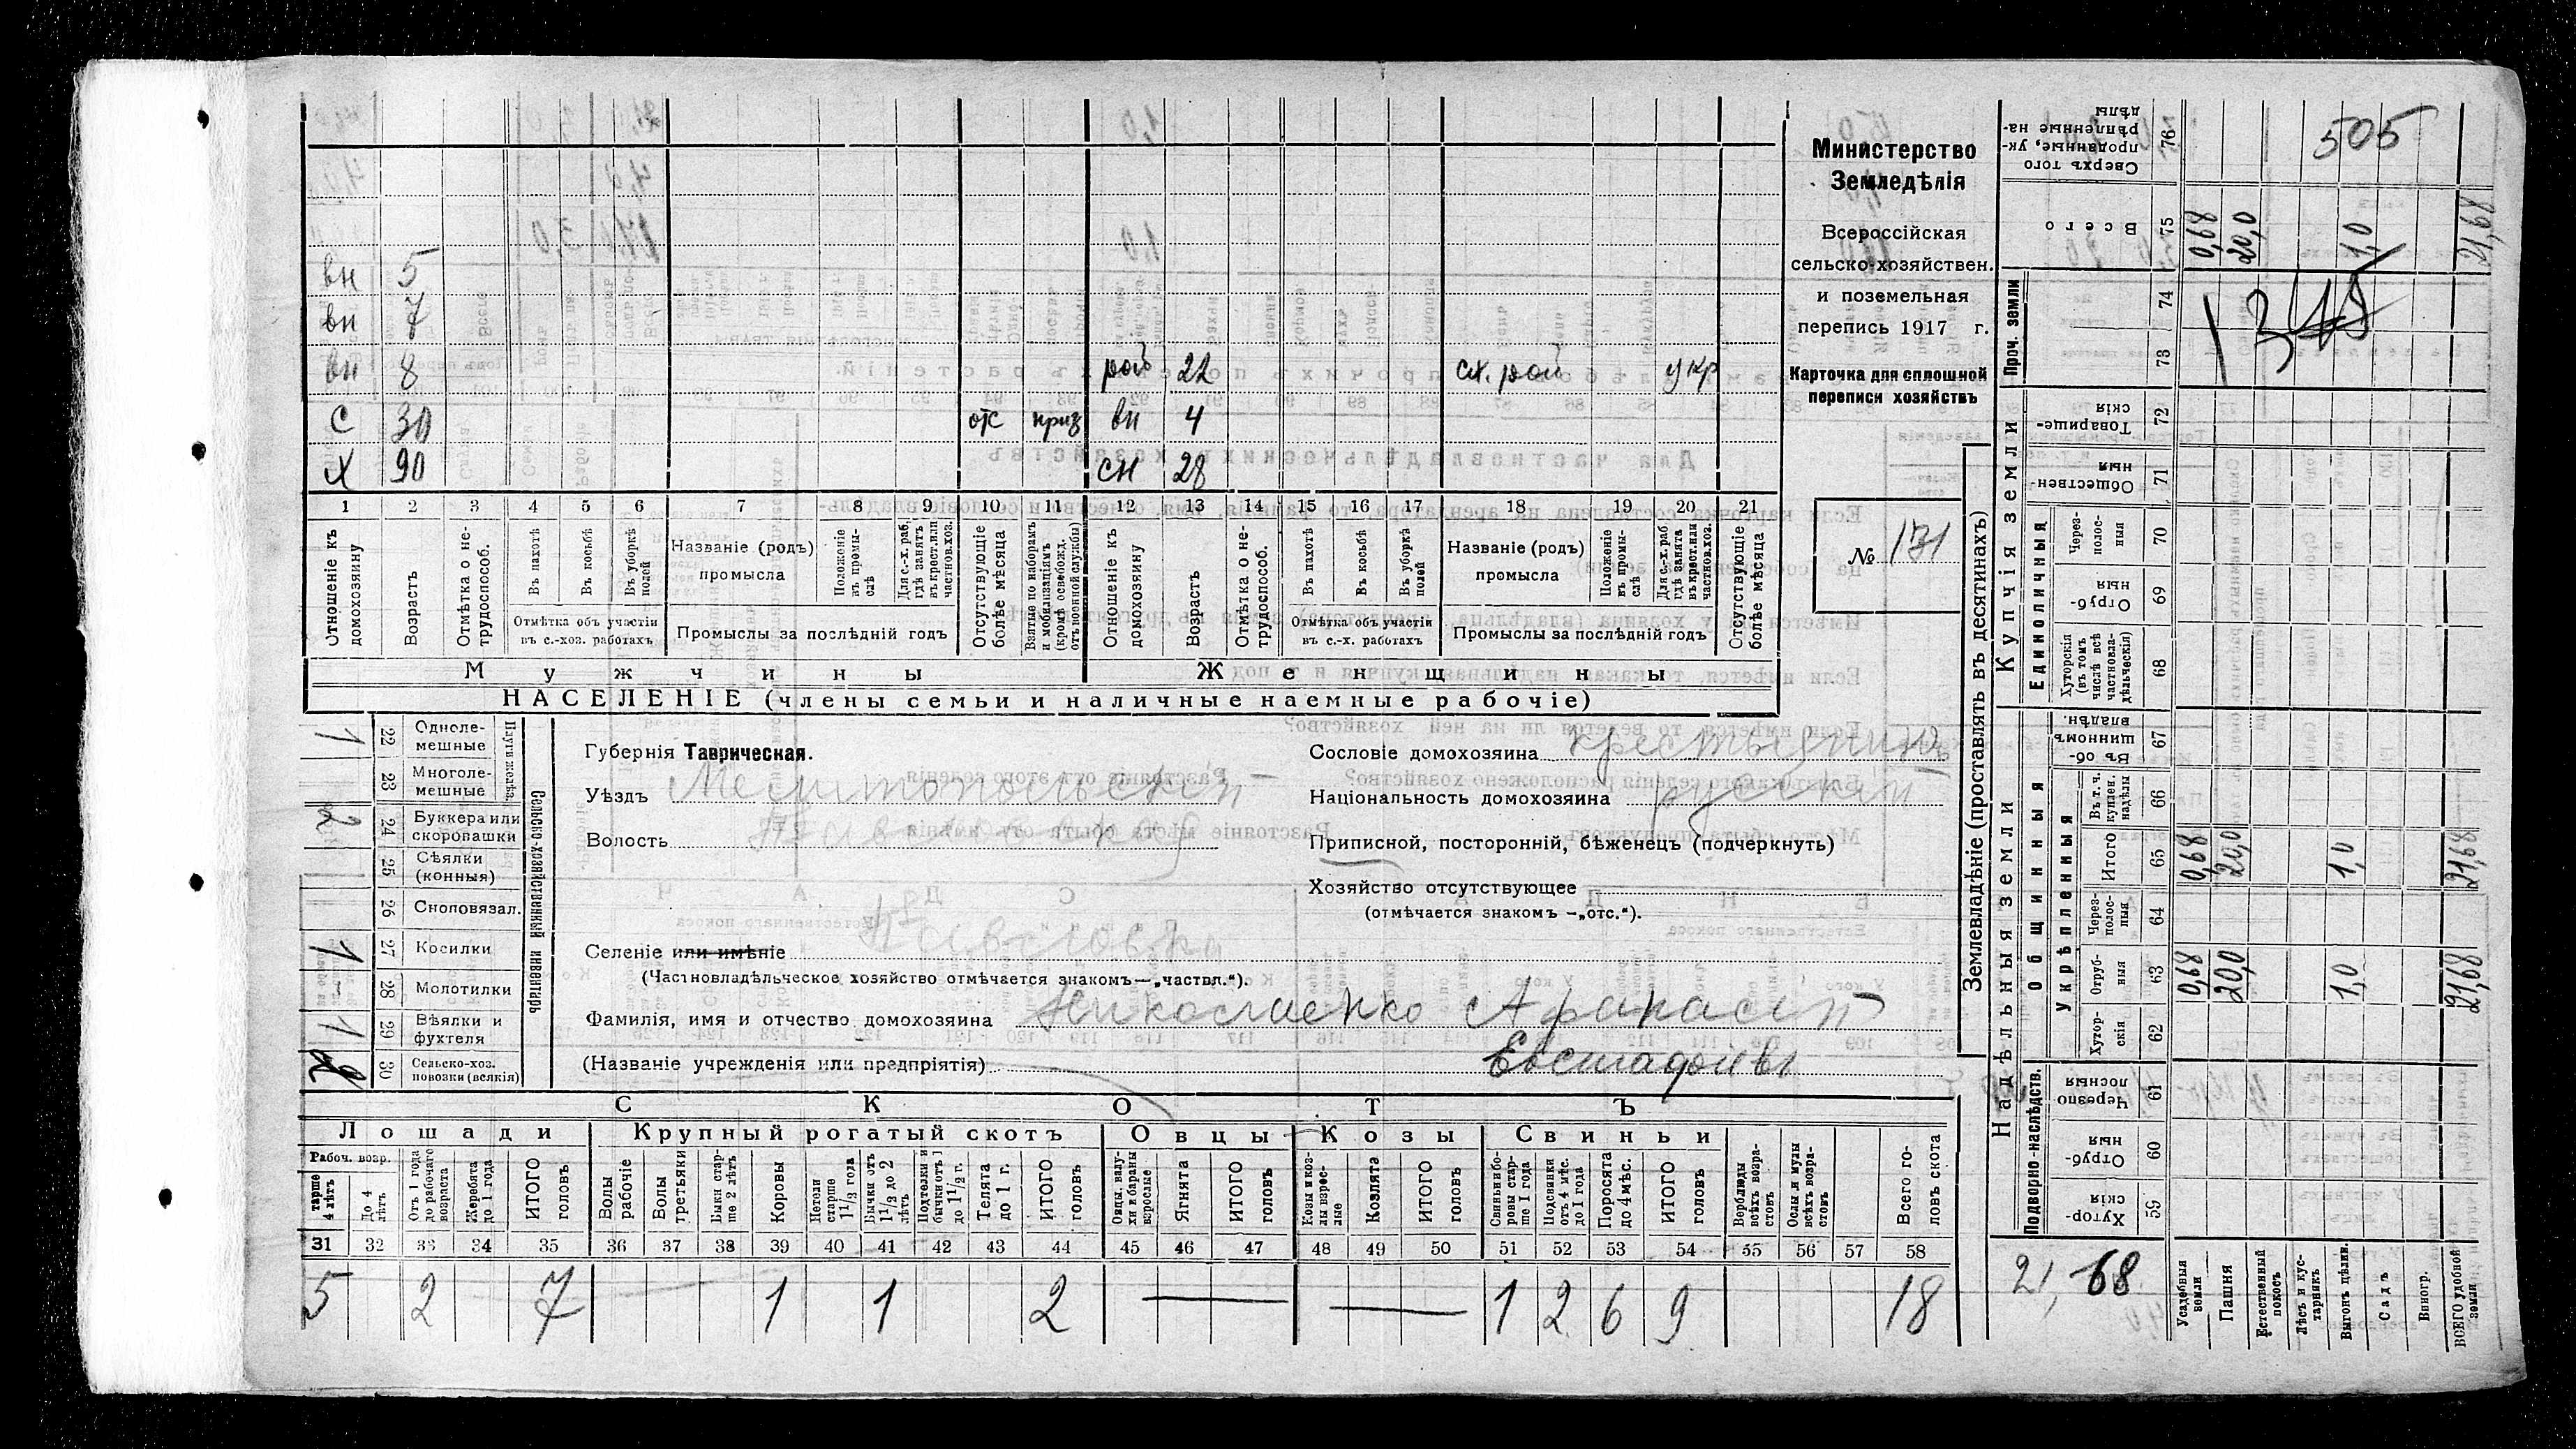 505
1348
Министерство
Земледѣлія
Всероссійская
сельско-хозяйствен.
и поземельная
перепись 1917 г.
Карточка для сплошной
переписи хозяйствъ
№ 131
вн 5
вн 7
вн 8 раб 22 сх. раб укр
С 30 отс приз вн 4
Х 90 сн 28
1 2 3 4 5 6 7 8 9 10 11 12 13 14 15 16 17 18 19 20 21
Отношеніе къ домохозяину
Возрастъ
Отмѣтка о не-трудоспособ.
Въ пахотѣ
Въ косьбѣ
Въ уборкѣ полей
Отмѣтка объ участіи въ с.-хоз. работахъ
Названіе (родъ) промысла
Положеніе въ промы-слѣ
Для с.-х. раб. гдѣ занятъ въ крест. или частнов. хоз.
Промыслы за послѣдній годъ
Отсутствующіе болѣе мѣсяца
Взятые по наборамъ и мобилизаціямъ (кромѣ освобожд. отъ военной службы)
Отношеніе къ домохозяину
Возрастъ
Отмѣтка о не-трудоспособ.
Въ пахотѣ
Въ косьбѣ
Въ уборкѣ полей
Отмѣтка объ участіи въ с.-х. работахъ
Названіе (родъ) промысла
Положеніе въ промы-слѣ
Для с.-х. раб. гдѣ занята въ крест. или частнов. хоз.
Промыслы за послѣдній годъ
Отсутствующіе болѣе мѣсяца
Мужчины Женщины
НАСЕЛЕНІЕ (члены семьи и наличные наемные рабочіе)
Сельско-хозяйственный инвентарь
Плуги желѣз.
1 22 Одноле-мешные
23 Многоле-мешные
2 24 Буккера или скоропашки
25 Сѣялки (конныя)
26 Сноповязал.
1 27 Косилки
- 28 Молотилки
1 29 Вѣялки и фухтеля
2 30 Сельско-хоз. повозки (всякія)
Губернія Таврическая.
Уѣздъ Мелитопольскій
Волость
Селеніе или имѣніе Павловка
(Частновладѣльческое хозяйство отмѣчается знакомъ—„частвл.“).
Фамилія, имя и отчество домохозяина Николаенко Афанасій
(Названіе учрежденія или предпріятія) Евстафіевъ
Сословіе домохозяина крестьянинъ
Національность домохозяина русскій
Приписной, посторонній, бѣженецъ (подчеркнуть)
Хозяйство отсутствующее
(отмѣчается знакомъ —„отс.“).
СКОТЪ
Лошади Крупный рогатый скотъ Овцы Козы Свиньи
Рабоч. возр.
тарше 4 лѣтъ
До 4 лѣтъ
Отъ 1 года до рабочаго возраста
Жеребята до 1 года
ИТОГО головъ
Волы рабочіе
Волы третьяки
Быки стар-ше 2 лѣтъ
Коровы
Нетели старше 1 1/2 года
Бычки отъ 1 1/2 до 2 лѣтъ
Подтелки и бычки отъ 1 до 1 1/2 г.
Телята до 1 г.
ИТОГО головъ
Овцы, валу-хи и бараны взрослые
Ягнята
ИТОГО головъ
Козы и коз-лы взрос-лые
Козлята
ИТОГО головъ
Свиньи и бо-ровы стар-ше 1 года
Подсвинки отъ 4 мѣс. до 1 года
Поросята до 4 мѣс.
ИТОГО головъ
Верблюды всѣхъ возра-стовъ
Ослы и мулы всѣхъ возра-стовъ
Всего го-ловъ скота
31 32 33 34 35 36 37 38 39 40 41 42 43 44 45 46 47 48 49 50 51 52 53 54 55 56 57 58
5 2 7 1 1 2 — — 1 2 6 9 18
Землевладѣніе (проставлять въ десятинахъ)
Купчія земли
Надѣльныя земли
Проч. земли
Единоличныя
Общинныя
Укрѣпленныя
Подворно-наслѣдств.
76 Сверхъ того проданные, ук-рѣпленные на-дѣлы
75 Всего 0,68 20,0 1,0 21,68
74
73
72 Товарище-скія
71 Обществен-ныя
70 Через-полос-ныя
69 Отруб-ныя
68 Хуторскія (въ томъ числѣ всѣ частновла-дѣльческія)
67 Въ об-щинномъ владѣн.
66 Въ т. ч. куплен. надѣлы
65 Итого 0,68 20,0 1,0 21,68
64 Через-полос-ныя
63 Отруб-ныя 0,68 20,0 1,0 21,68
62 Хутор-скія
61 Черезпо лосныя
60 Отруб-ныя
59 Хутор-скія
21,68
Усадебныя земли
Пашня
Естественный покосъ
Лѣсъ и кус-тарникъ
Выгонъ цѣлин.
Садъ
Виногр.
ВСЕГО удобной земли